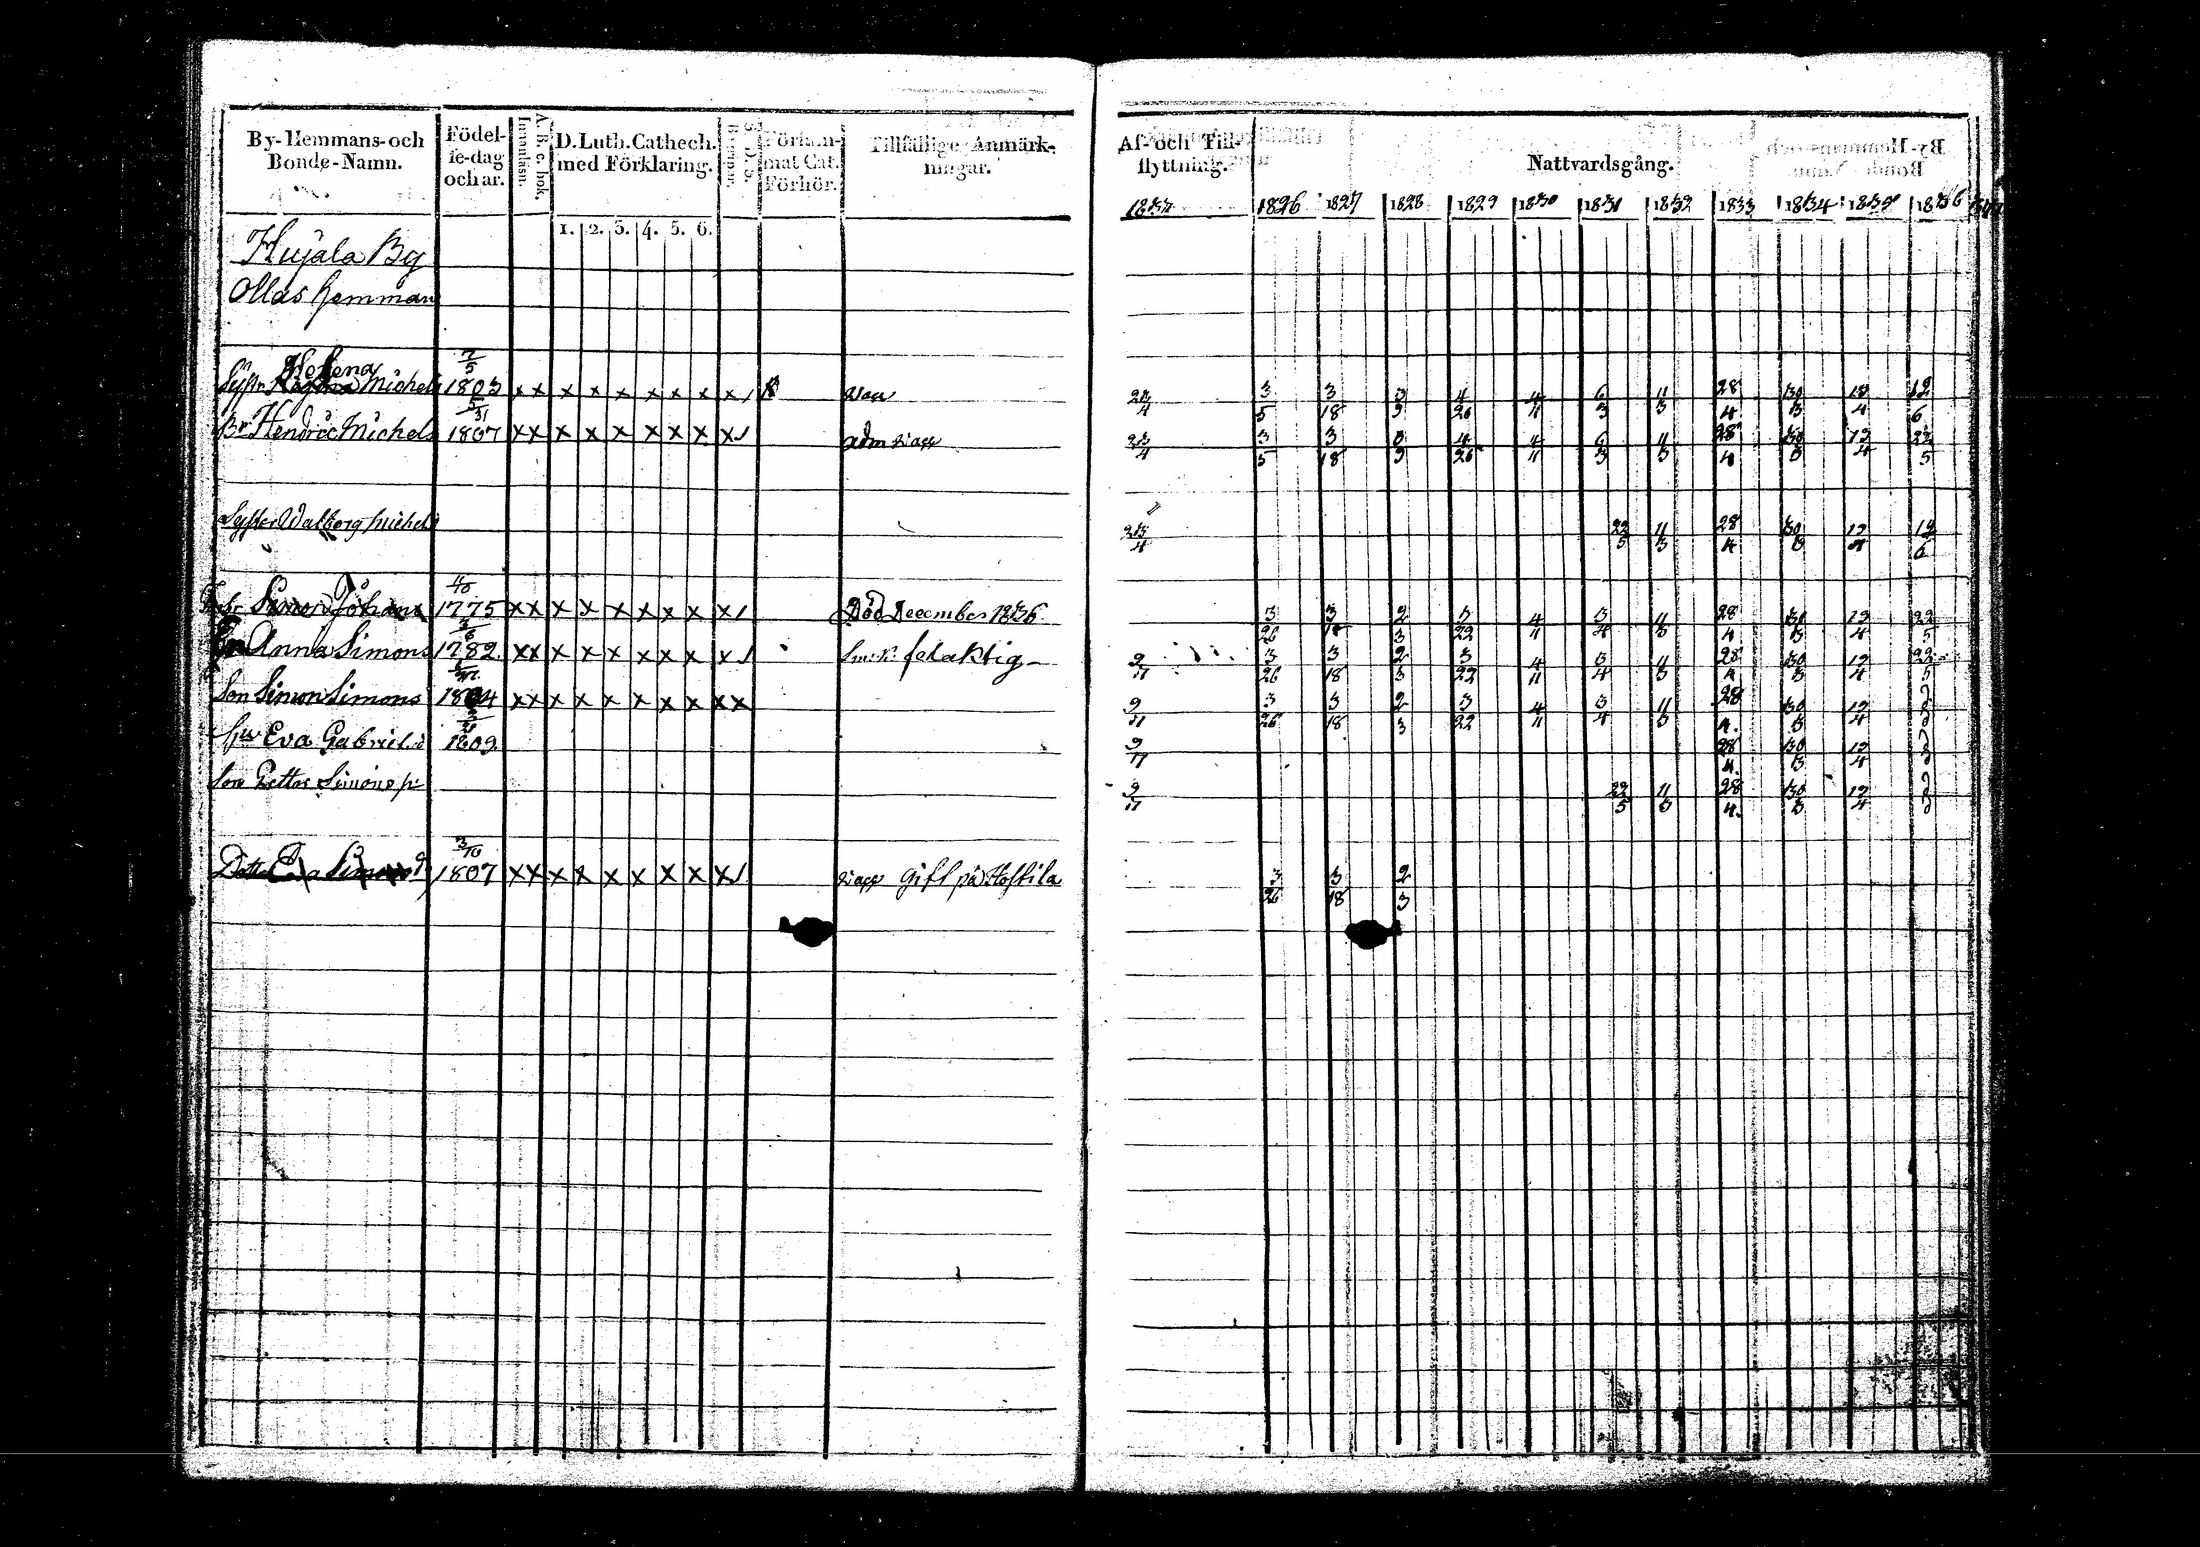 By-Hemmans-och
Bonde-Namn.
Födel-
se-dag
och år.
A. B. c. bok.
Innanläsn.
D. Luth. Cathech.
med Förklaring.
1. 2. 3. 4. 5. 6.
Försum-
mat Cat.
Förhör.
Tillfällige Anmärk-
ningar.
Af- och Till-
flyttning.
Nattvardsgång.
1837 1826 1827 1828 1829 1830 1831 1832 1833 1834 1835 1836
Hujala By
Ollas hemman
Helena
7/5
Syst. Michels 1803 x x x x x x x x x
23/4 3/5 3/18 3/9 4/26 4/11 6/3 11/3 28/4 30/3 12/4 12/6
5/31
Br Hendric Michels 1807 x x x x x x x x x
23/4 3/5 3/18 4/26 4/11 6/3 11/3 28/4 30/3 12/4 22/5
Syster Walborg Michels
23/4 22/5 11/3 28/4 30/3 12/4 12/6
Simon Johans 1775 x x x x x x x x x Död December 1836
3/26 3/18 2/3 3/22 4/11 3/4 11/3 28/4 30/3 12/4 22/5
Anna Simons 1782 x x x x x x x x x felaktig
9/11 3/26 3/18 2/3 3/22 4/11 3/4 11/3 28/4 30/3 12/4 22/5
Son Simon Simons 1804 x x x x x x x x x x
9/11 3/26 3/18 2/3 3/22 4/11 3/4 11/3 28/4 30/3 12/4
Hu Eva Gabriels 1809
9/11 28/4 30/3 12/4
Son Petter Simons
9/11 22/5 11/3 28/4 30/3 12/4
3/10
Dott Eva Simons 1807 x x x x x x x x x Gift på Hostila
3/26 3/18 2/3